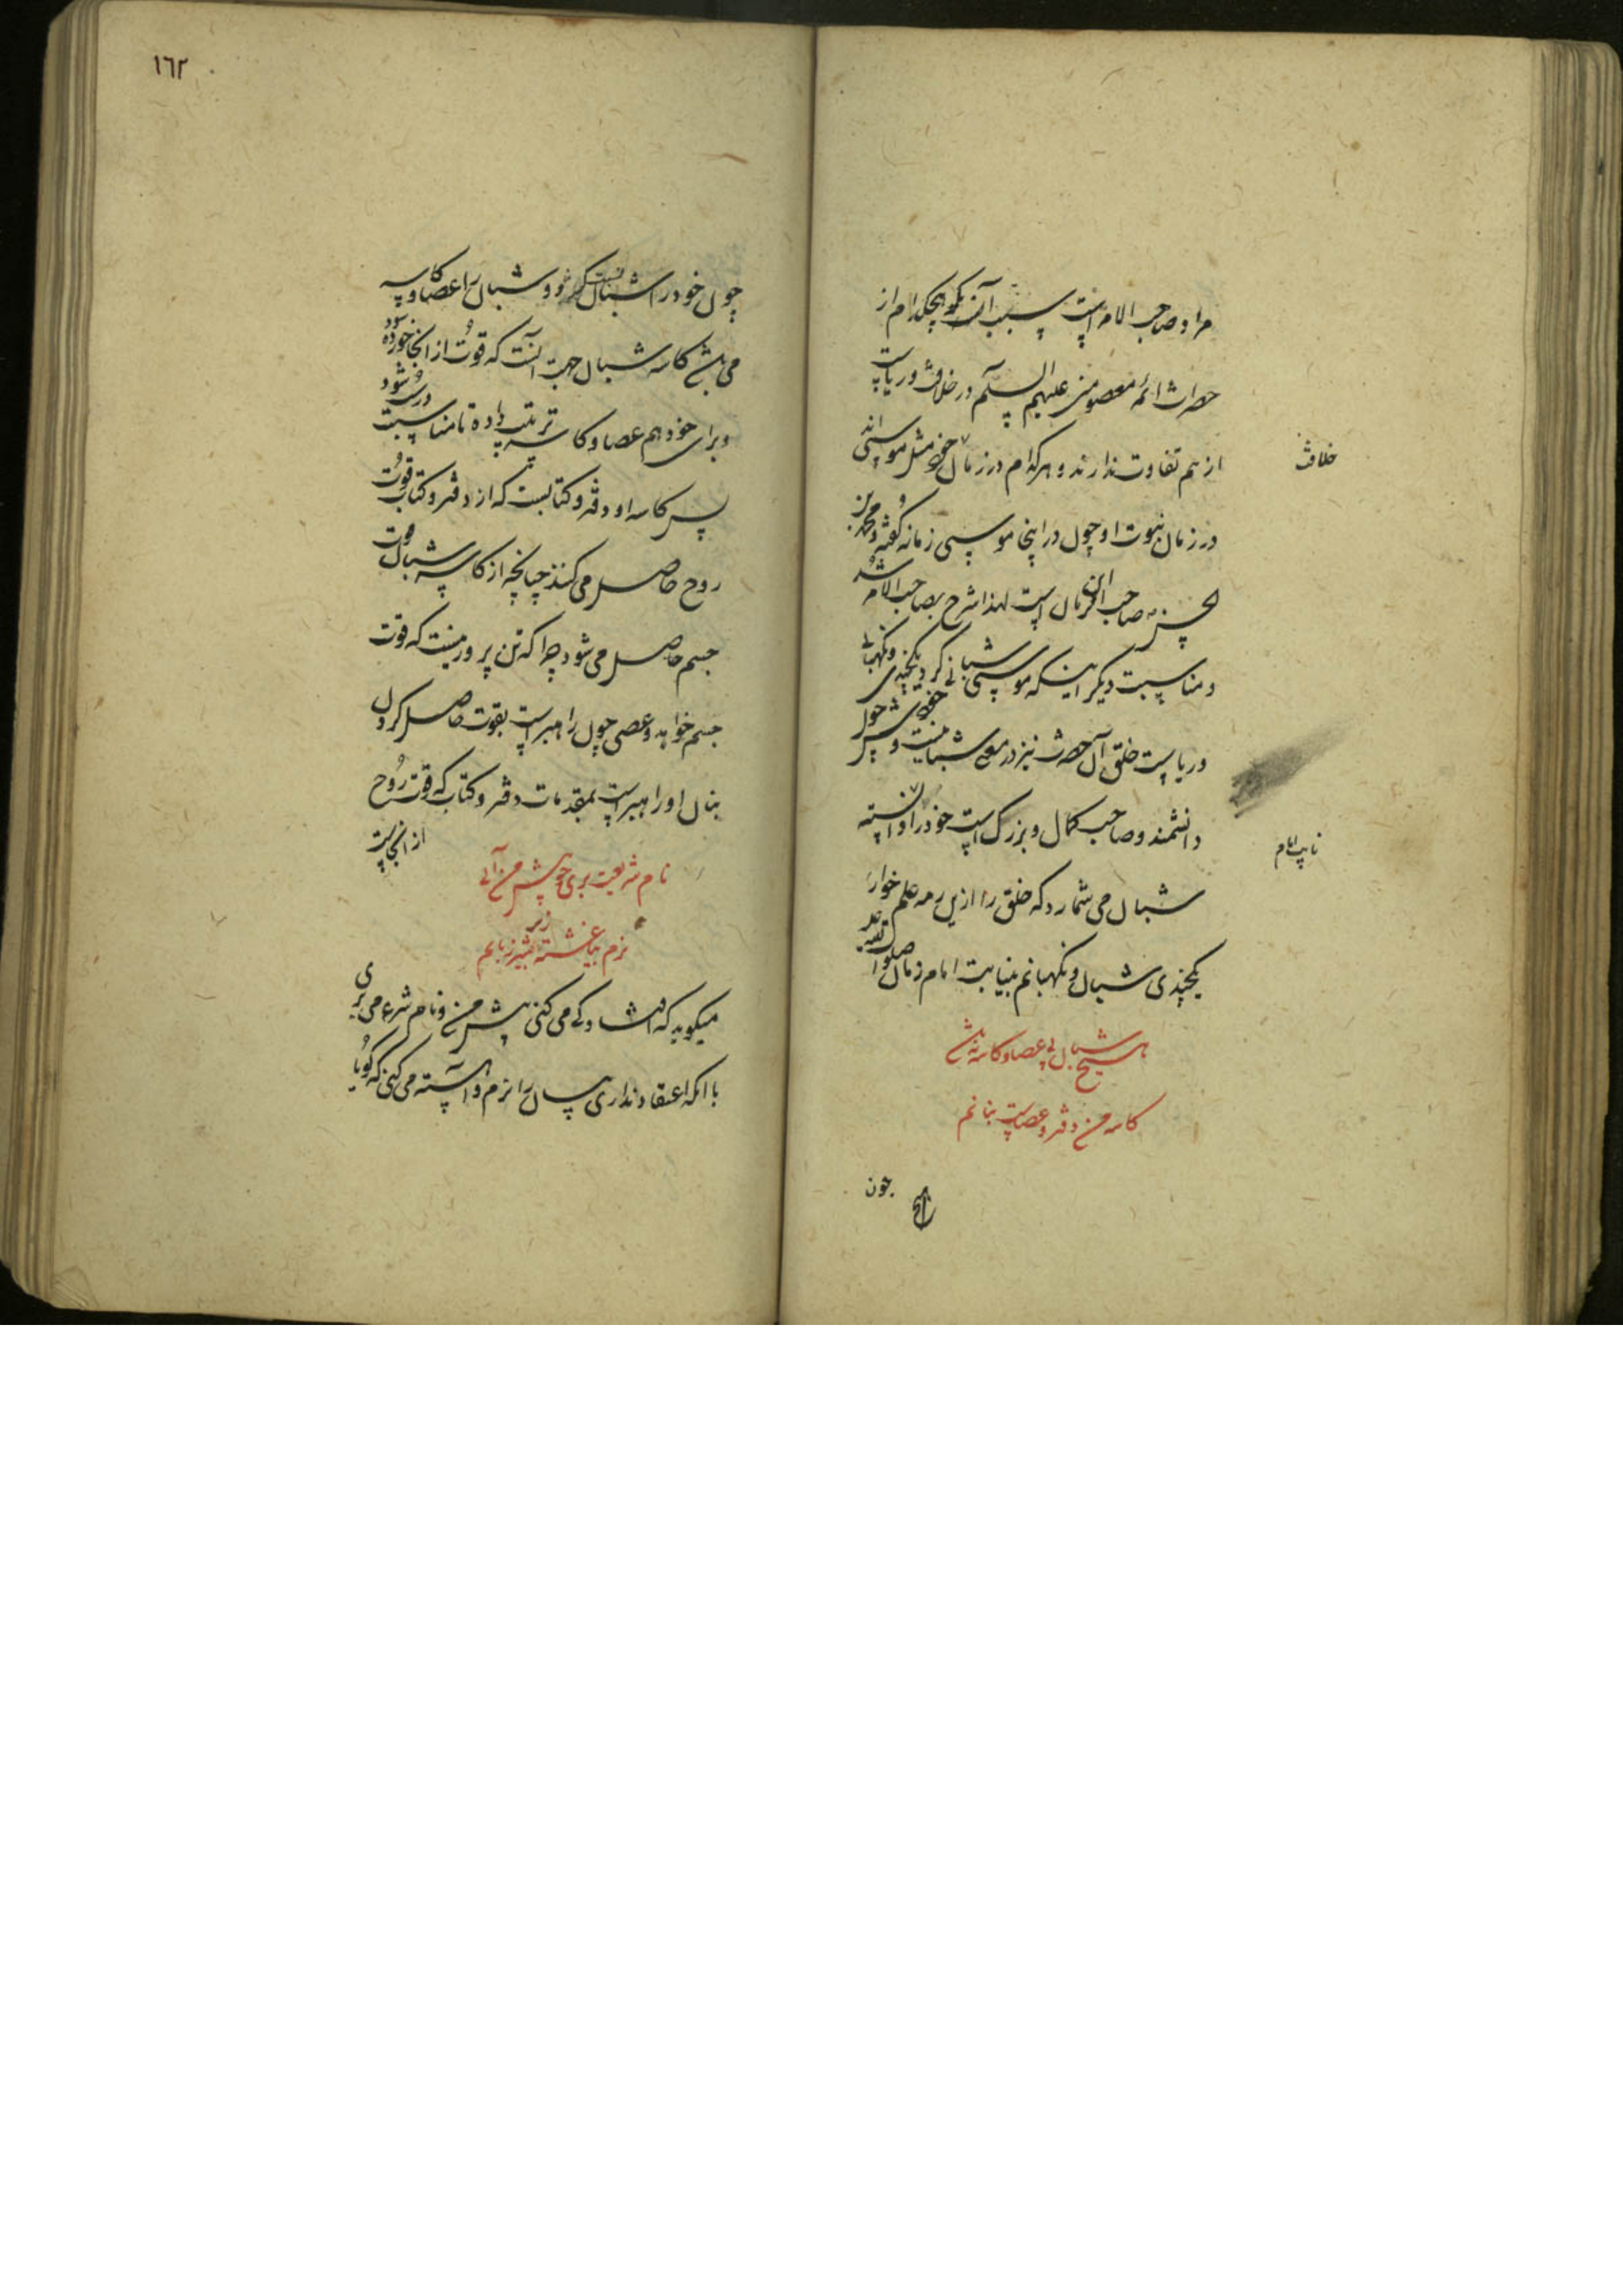 مراد صاحب الامر است سبب آنکه گوید هیچکدام از
حضرات ائمه معصومین علیهم السلم در خلافت و ریاست
از هم تفاوت ندارند و هرکدام در زمان خود مثل موسی‌اند
خلافت
در زمان نبوت او چون در اینجا موسی زمانه گفته و محمد بن
الحسن که صاحب الزمان است لهذا شرح بصاحب الامر شد
و مناسبت دیگر اینکه موسی شبانی کرد یکچندی و نگهبانی
و ریاست خلق آن حضرت نیز در معنی شبانیست و چون
دانشمند و صاحب کمال و بزرگ است خود را دانسته
نایب امام
شبان می شمارد که خلق را ازین رمه علم خوار
یکچندی شبان و نگهبانم بنیابت امام زمان صلوات الله علیه
هیچ شبان بی عصا و کاسه نباشد
کاسه من دفتر و عصاست بنانم
چون
١٦٢
چون خود را شبان گفت و شبان را عصا و کاسه
می باشد کاسه شبان جهت آنست که قوت از آنجا خورده شود
و برای خود هم عصا و کاسه ترتیب داده تا مناسبت درست شود
پس کاسه او دفتر و کتابست که از دفتر و کتاب قوت
روح حاصل می کند چنانچه از کاسه شبان قوت
جسم حاصل می شود چرا که تن پرور نیست که قوت
جسم خواهد و عصی چون راهبر است بقوت حاصل کردن
بنان او راهبر است بمقدمات دفتر و کتاب که قوت روح
از آنجاست
نام شریعت بری چو پیش من آئی
نرم بیاغشته زیر شیر زبانم
میگوید که می کنی پیش من و نام شرع می بری
با آنکه اعتقاد نداری پس آن را نرم و آهسته می کنی که گویا